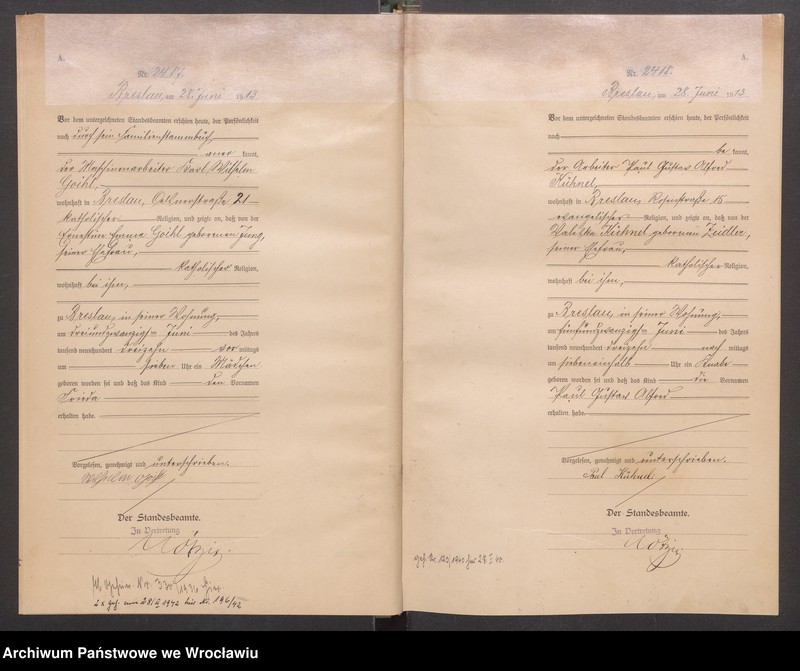 A.
Nr. 2417.
Breslau, am 28. Juni 1913
Vor dem unterzeichneten Standesbeamten erschien heute, der Persönlichkeit
nach durch sein Familienstammbuch
aner kannt,
der Maschinenarbeiter Karl Wilhelm
Goihl,
wohnhaft in Breslau, Oelsnerstraße 21
katholischer Religion, und zeigte an, daß von der
Ernestine Emma Goihl geborenen Jung,
seiner Ehefrau,
katholischer Religion,
wohnhaft bei ihm,
zu Breslau, in seiner Wohnung,
am dreiundzwanzigsten Juni des Jahres
tausend neunhundert dreizehn vor mittags
um sieben Uhr ein Mädchen
geboren worden sei und daß das Kind den Vornamen
Frieda
erhalten habe.
Vorgelesen, genehmigt und unterschrieben.
Wilhelm
Der Standesbeamte.
In Vertretung
A.
Nr. 2418.
Breslau, am 28. Juni 1913
Vor dem unterzeichneten Standesbeamten erschien heute, der Persönlichkeit
nach
be kannt,
der Arbeiter Paul Gustav Alfred
Kühnel,
wohnhaft in Breslau, Rosenstraße 15
evangelischer Religion, und zeigte an, daß von der
Valeska Kühnel geborenen Zeidler,
seiner Ehefrau,
katholischer Religion,
wohnhaft bei ihm,
zu Breslau, in seiner Wohnung,
am fünfundzwanzigsten Juni des Jahres
tausend neunhundert dreizehn nach mittags
um siebeneinhalb Uhr ein Knabe
geboren worden sei und daß das Kind die Vornamen
Paul Gustav Alfred
erhalten habe.
Vorgelesen, genehmigt und unterschrieben.
Paul Kühnel
Der Standesbeamte.
In Vertretung
Archiwum Państwowe we Wrocławiu